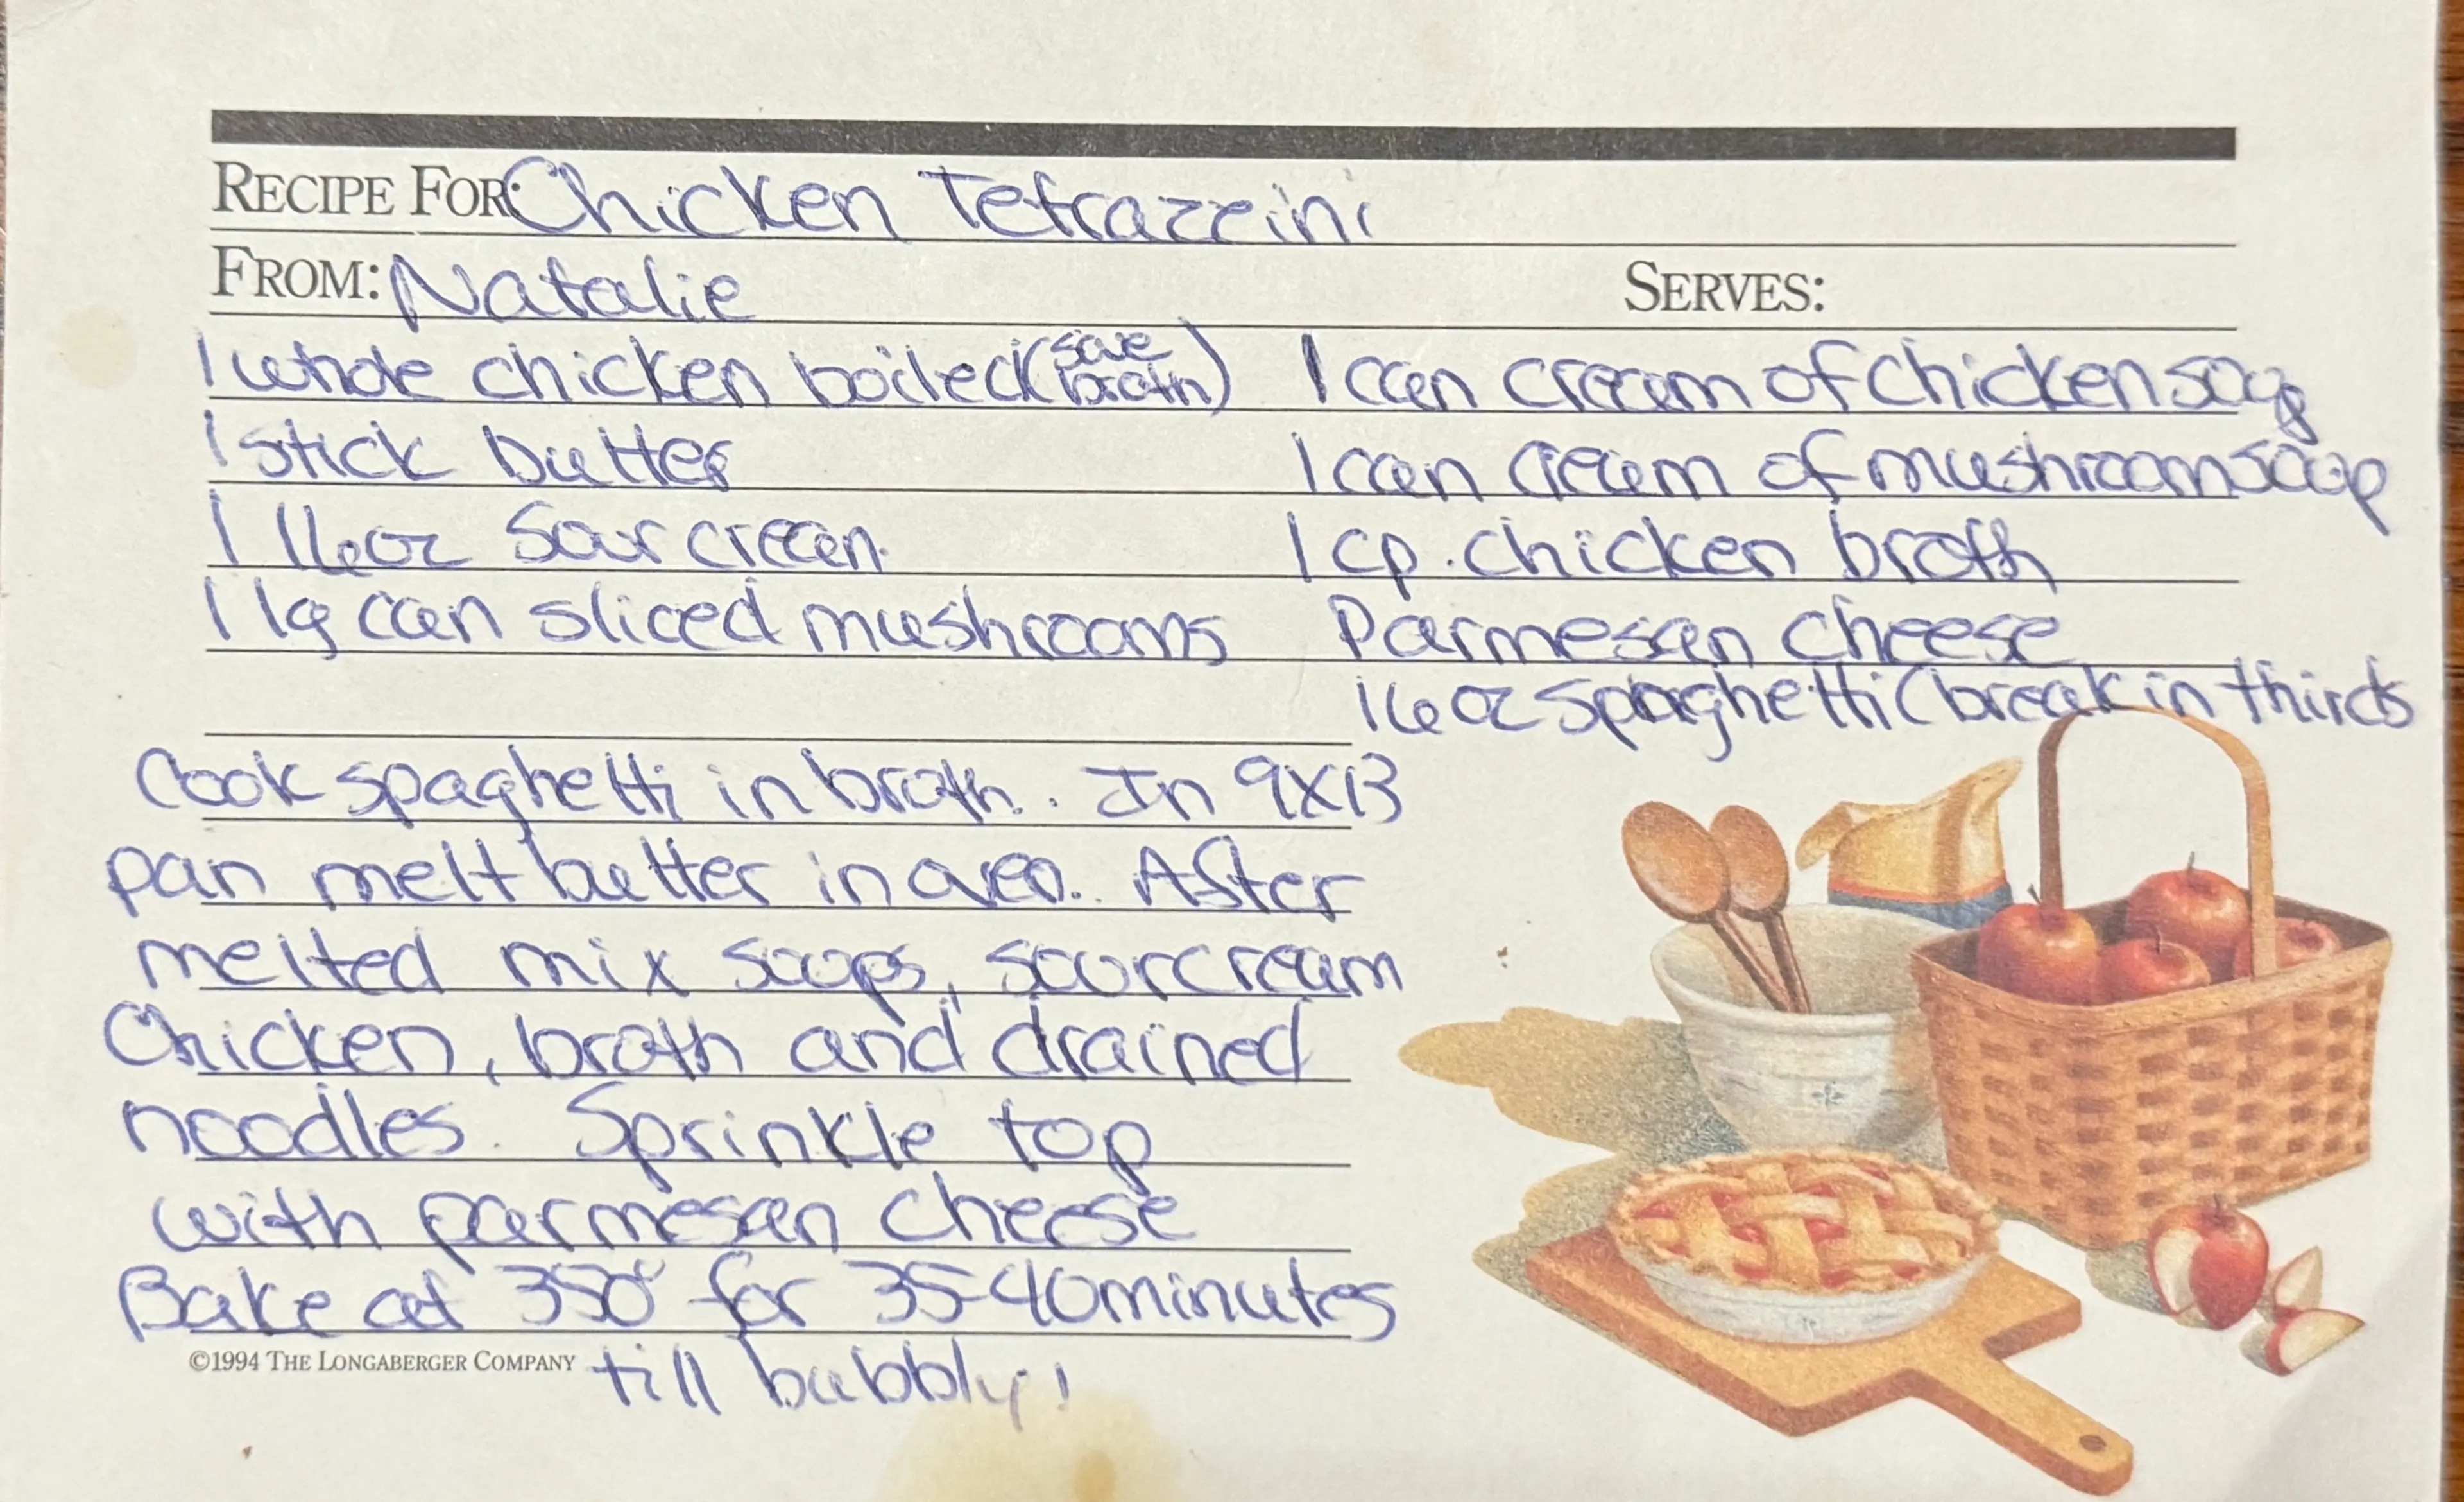 RECIPE FOR: Chicken Tetrazzini
FROM: Natalie
SERVES:
1 whole chicken boiled (save broth)
1 stick butter
1 16oz sour cream
1 lg can sliced mushrooms
1 can cream of chicken soup
1 can cream of mushroom soup
1 cp. chicken broth
Parmesan cheese
16 oz spaghetti (break in thirds
Cook spaghetti in broth. In 9X13
pan melt butter in oven. After
melted mix soups, sour cream
Chicken, broth and drained
noodles. Sprinkle top
with parmesan cheese
Bake at 350° for 35-40 minutes
till bubbly!
©1994 THE LONGABERGER COMPANY